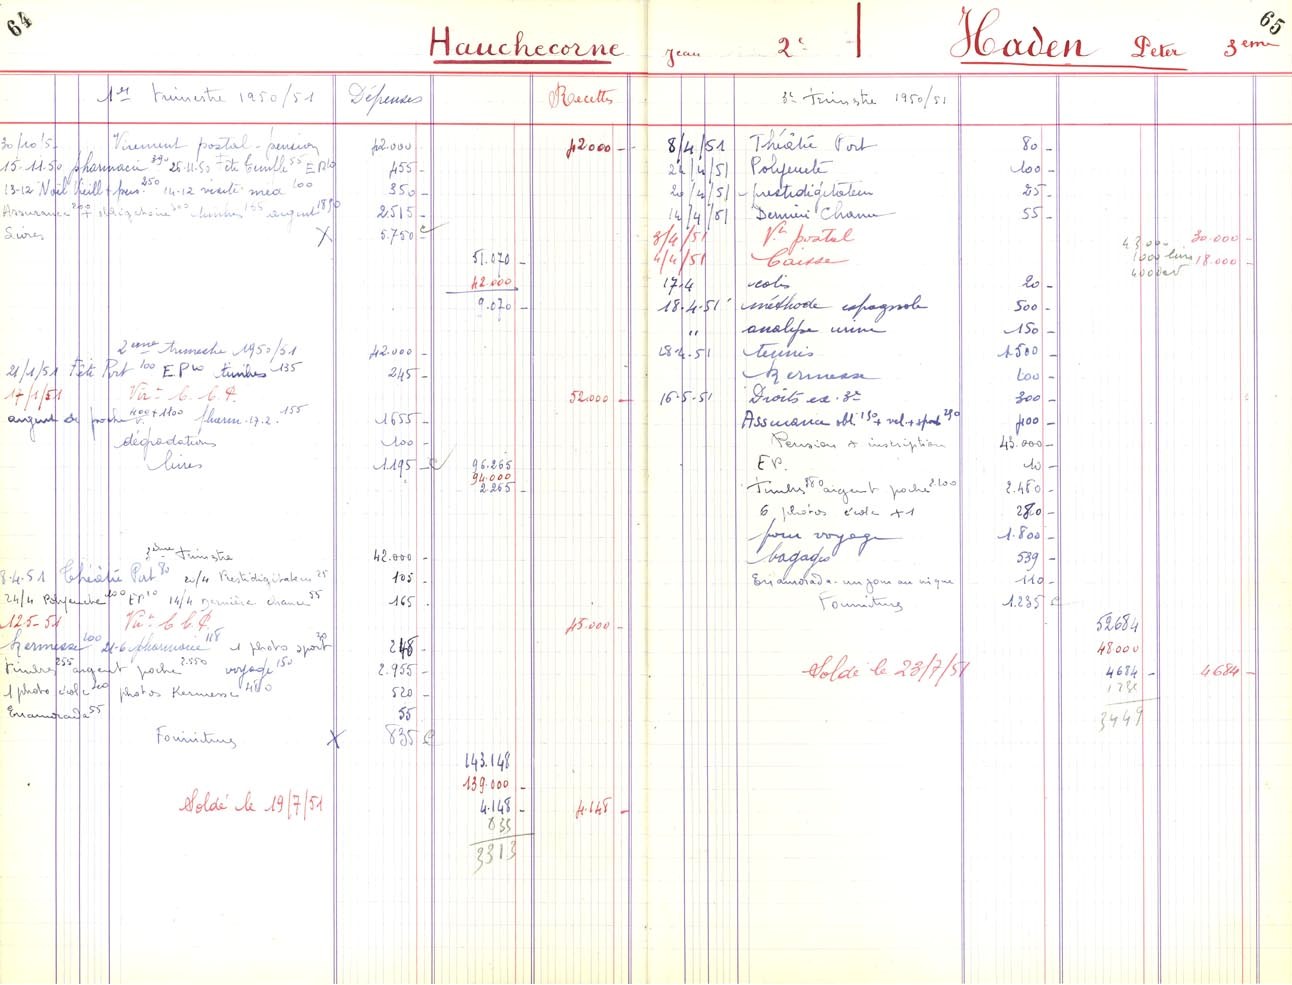 64
Hauchecorne Jean 2e
1er trimestre 1950/51 Dépenses Recettes
30/10/5 Virement postal - pension 42.000 42000 -
15-11.50 pharmacie 390 25-11-50 Fête 55 EP 10 455 -
13-12 Noël Vieill + 250 14-12 visite med 100 350 -
Assurance 200 + obligatoire 300 timbres 135 argent 2515 -
Livres X 5.750 -
51.070 -
42.000
9.070 -
2eme trimestre 1950/51 42.000 -
21/1/51 Fête Port 100 EP 10 timbres 135 245 -
17/1/51 Virt C.C.P. 52000 -
argent de poche 400 + 1100 pharm. 17.2. 155 1655 -
dégradations 100 -
livres 1195 - 96.265
94.000
2.265 -
3ème trimestre 42.000 -
8-4.51 Théâtre Port 80 20/4 Prestidigitateur 25 105 -
24/4 Polyeucte 100 EP 10 14/4 Dernière chance 55 165 -
12.5-51 Virt C.C.P. 45.000 -
Kermesse 100 21-6 pharmacie 118 1 photo sport 30 248 -
timbres 255 argent poche 2.550 voyage 150 2.955 -
1 photo école 40 photos Kermesse 480 520 -
Enamorada 55 55
Fournitures X 835
143.148
139.000 -
Soldé le 19/7/51 4.148 - 4.148 -
835
3313
65
Haden Peter 3eme
3e trimestre 1950/51
8/4/51 Théâtre Port 80 -
24/4/51 Polyeucte 100 -
20/4/51 prestidigitateur 25 -
14/4/51 Dernière Chance 55 -
3/4/51 Vt postal 30.000 -
4/4/51 Caisse 18.000 -
17.4 colis 20 -
18.4.51 méthode espagnole 500 -
" analyse urine 150 -
28.4.51 tennis 1500 -
Kermesse 100 -
16-5-51 Droits ex. 300 -
Assurance obl. 150 + vol. + sport 250 400 -
Pension + inscription 43.000 -
EP. 10 -
Timbres 380 argent poche 2.100 2.480 -
6 photos école + 1 280 -
pour voyage 1.800 -
bagages 539 -
Enamorada - un jour au cirque 110 -
Fournitures 1.235
52684
48000
Soldé le 23/7/51 4684 - 4684 -
1235
3449